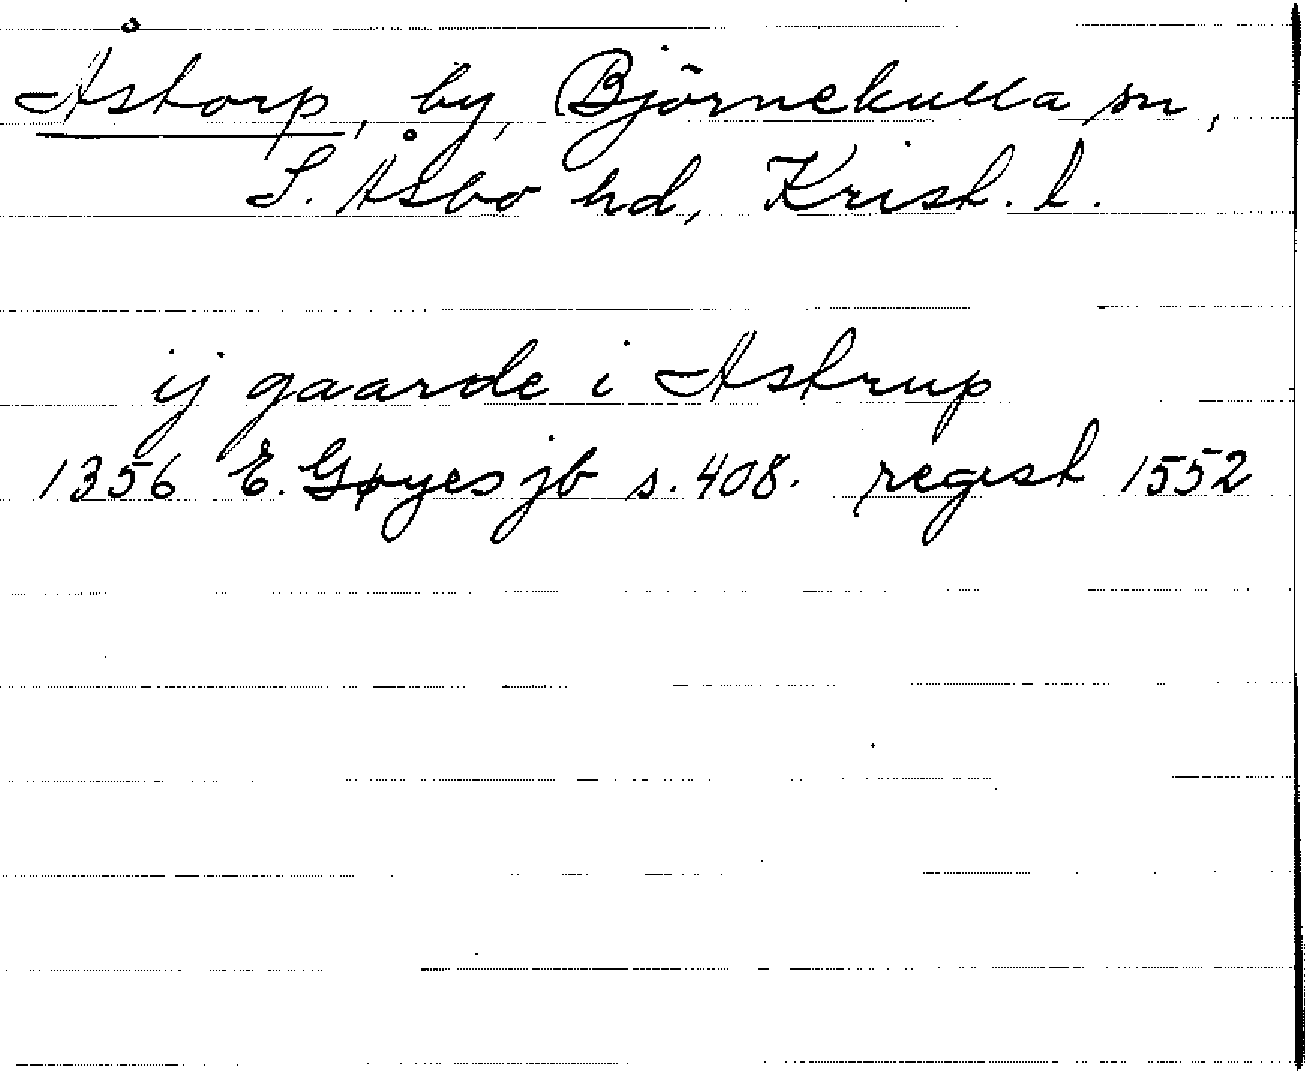 Åstorp, by, Björnekulla sn,
S. Åsbo hd, Krist. l.
ij gaarde i Astrup
1356 E. Gøyes jb s. 408. regist 1552